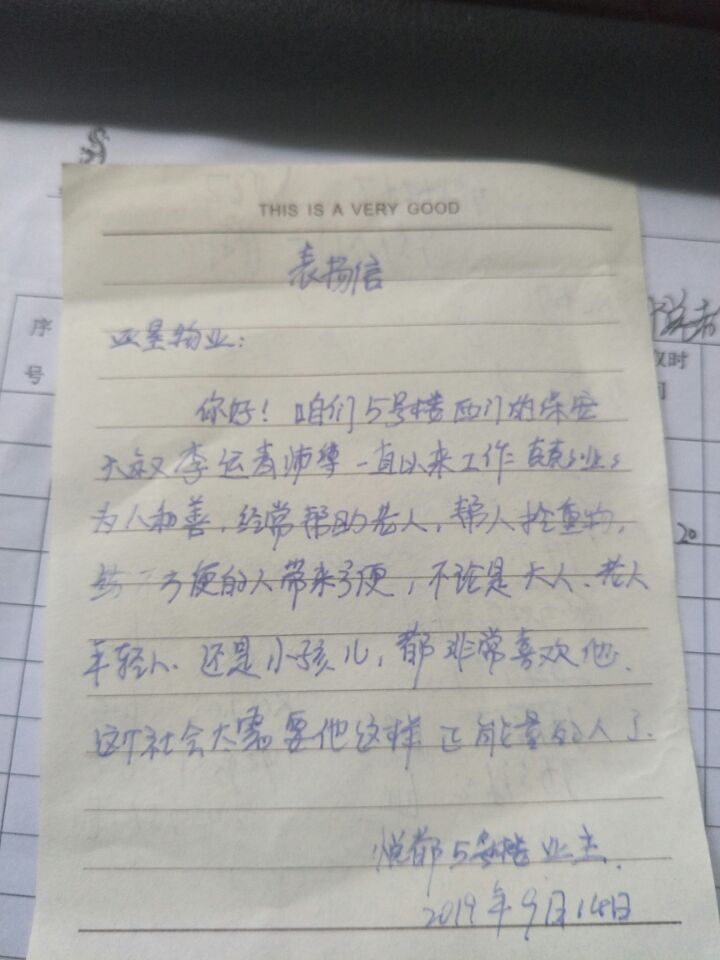 THIS IS A VERY GOOD
表扬信
亚星物业：
你好！咱们5号楼西门的保安
大叔李运青师傅一直以来工作兢兢业业
为人和善，经常帮助老人，帮人抢重物，
给不方便的人带来方便，不论是大人、老人
年轻人、还是小孩儿，都非常喜欢他．
这个社会太需要他这样正能量的人了．
悦都5号楼业主．
2019年9月14日
序
号
时
间
20